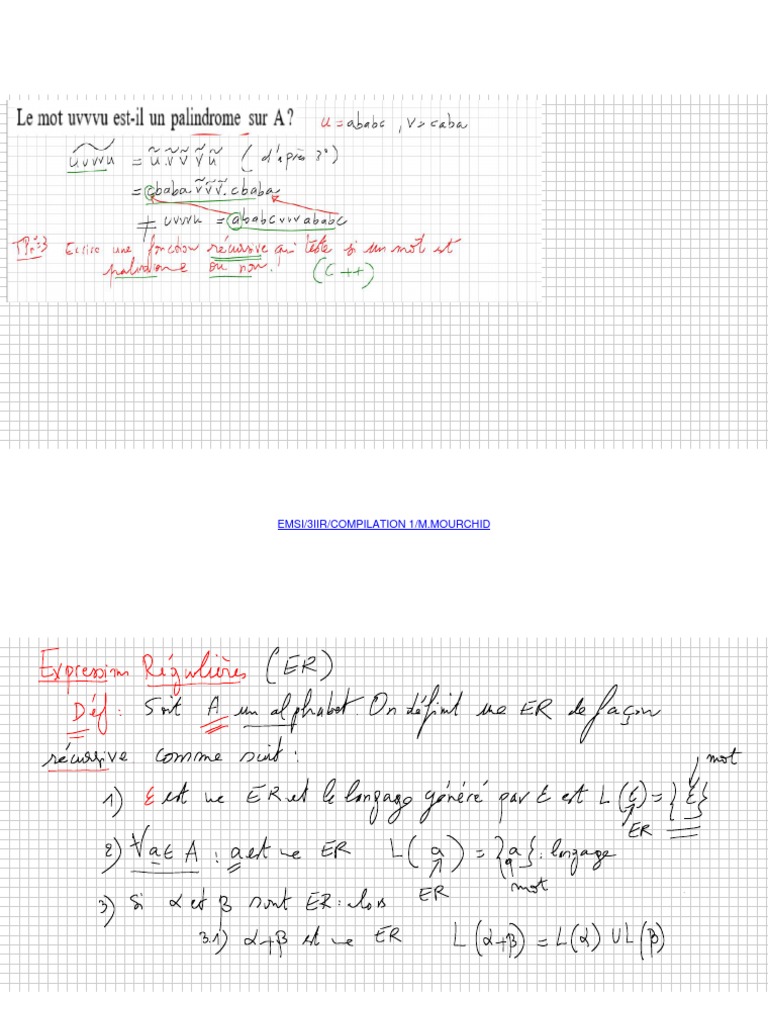 Le mot uvvvu est-il un palindrome sur A ? u = ababc , v = caba
uvvvu = ũ.ṽ ṽ ṽ ũ ( d'après 3°)
= cbaba ṽṽṽ. cbaba
≠ uvvvu = ababcvvvababc
TP n°=3 Ecrire une fonction récursive qui teste si un mot est
palindrome ou non. (C++)
EMSI/3IIR/COMPILATION 1/M.MOURCHID
Expressions Régulières (ER)
Déf : Soit A un alphabet. On définit une ER de façon
récursive comme suit :
mot
1) ε est une ER et le langage généré par ε est L(ε) = {ε}
ER
2) ∀a ∈ A : a est une ER L(a) = {a} : langage
ER mot
3) Si α et β sont ER : alors
3.1) α+β est une ER L(α+β) = L(α) ∪ L(β)